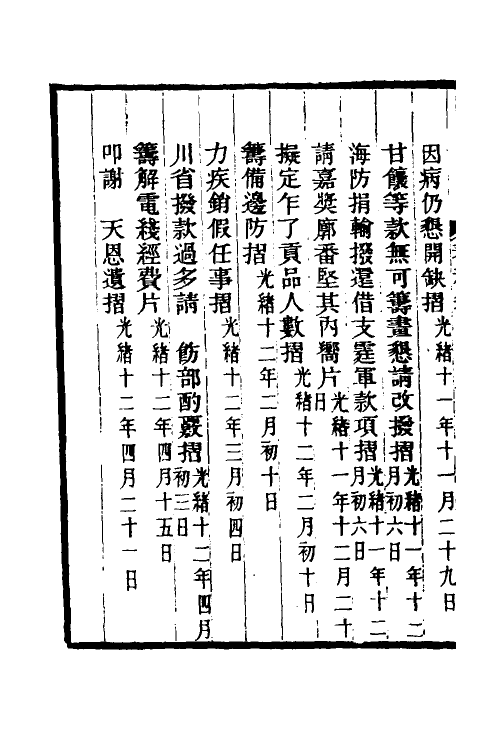 因病仍懇開缺摺光緒十一年十一月二十九日
甘餉等款無可籌畫懇請改撥摺光緒十一年十二月初六日
海防捐輸撥還借支霆軍款項摺光緒十一年十二月初六日
請嘉獎廓番堅其內嚮片光緒十一年十二月二十日
擬定乍丫貢品人數摺光緒十二年二月初十日
籌備邊防摺光緒十二年二月初十日
力疾銷假任事摺光緒十二年三月初四日
川省撥款過多請 飭部酌覈摺光緒十二年四月初三日
籌解電綫經費片光緒十二年四月十五日
叩謝 天恩遺摺光緒十二年四月二十一日